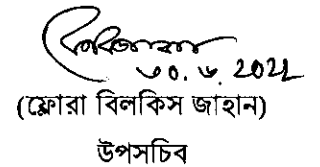 ৩০.৬.2022
(ফ্লোরা বিলকিস জাহান)
উপসচিব